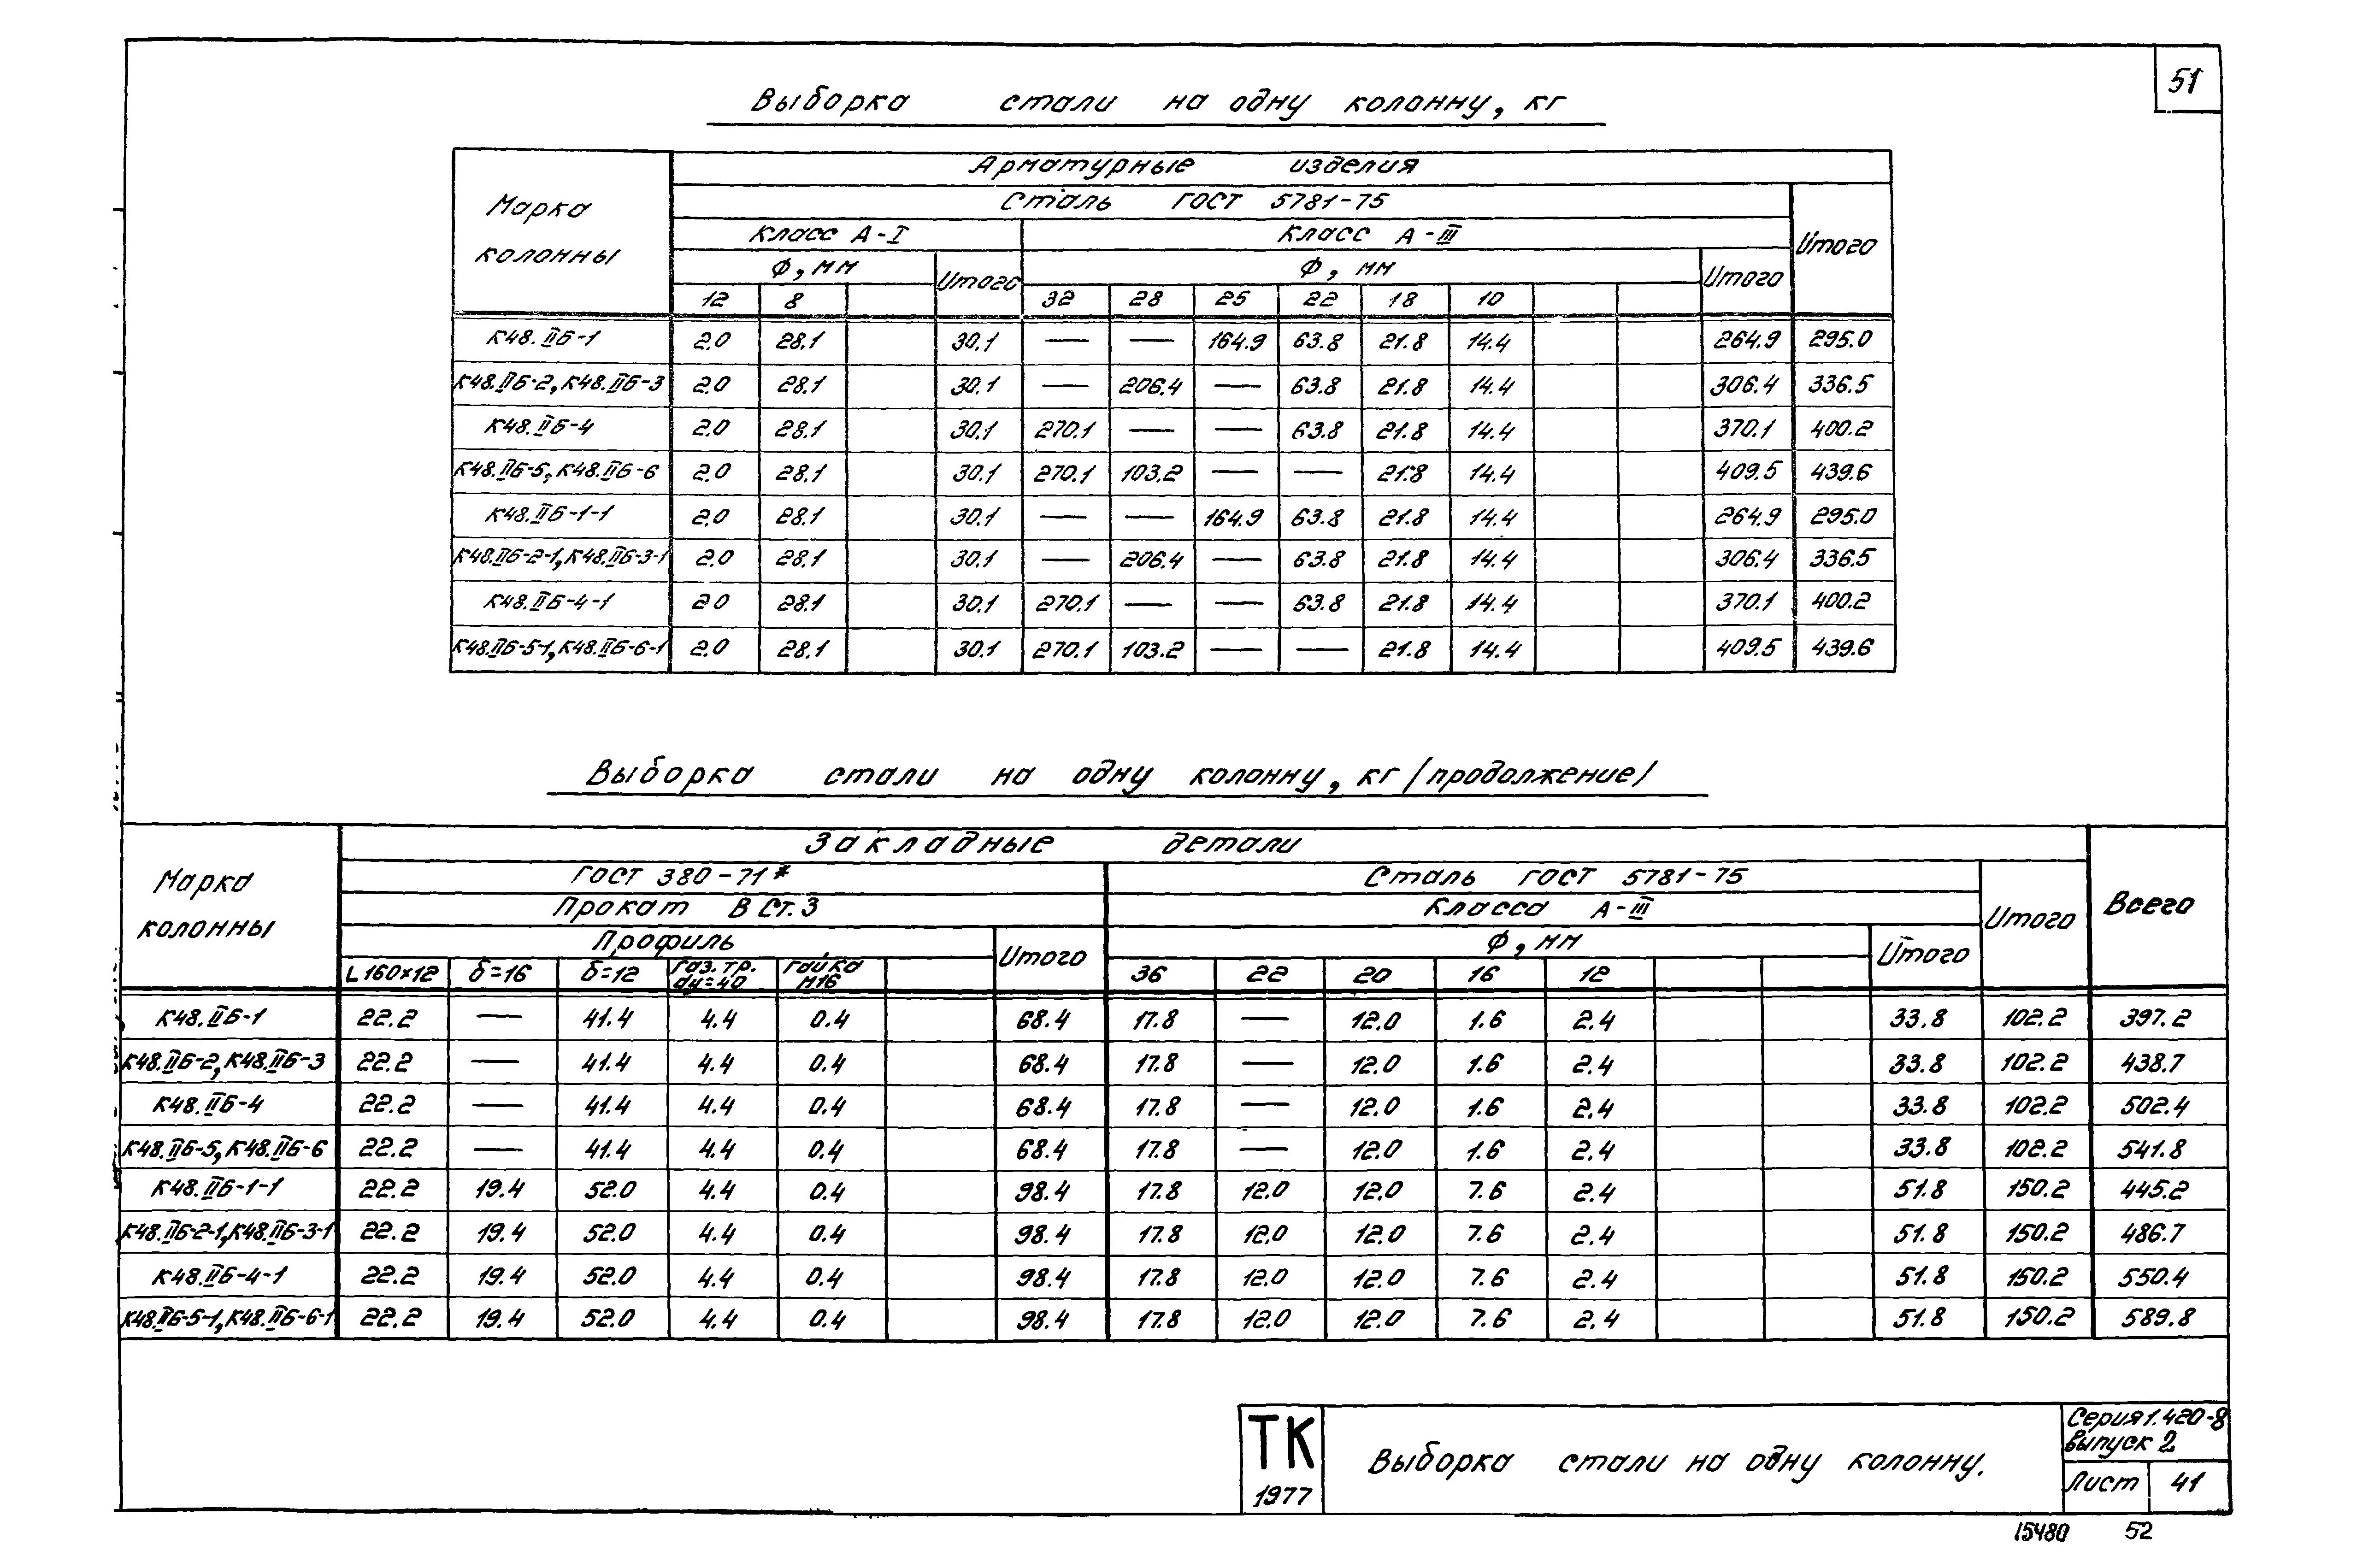 51
Выборка стали на одну колонну, кг
Марка колонны
Арматурные изделия
Сталь ГОСТ 5781-75
Итого
Класс А-I
Класс А-III
Ф, мм
Итого
Ф, мм
Итого
12 8 32 28 25 22 18 10
К48.IIБ-1 2.0 28.1 30.1 — — 164.9 63.8 21.8 14.4 264.9 295.0
К48.IIБ-2, К48.IIБ-3 2.0 28.1 30.1 — 206.4 — 63.8 21.8 14.4 306.4 336.5
К48.IIБ-4 2.0 28.1 30.1 270.1 — — 63.8 21.8 14.4 370.1 400.2
К48.IIБ-5, К48.IIБ-6 2.0 28.1 30.1 270.1 103.2 — — 21.8 14.4 409.5 439.6
К48.IIБ-1-1 2.0 28.1 30.1 — — 164.9 63.8 21.8 14.4 264.9 295.0
К48.IIБ-2-1, К48.IIБ-3-1 2.0 28.1 30.1 — 206.4 — 63.8 21.8 14.4 306.4 336.5
К48.IIБ-4-1 2.0 28.1 30.1 270.1 — — 63.8 21.8 14.4 370.1 400.2
К48.IIБ-5-1, К48.IIБ-6-1 2.0 28.1 30.1 270.1 103.2 — — 21.8 14.4 409.5 439.6
Выборка стали на одну колонну, кг /продолжение/
Марка колонны
Закладные детали
Всего
ГОСТ 380-71*
Сталь ГОСТ 5781-75
Итого
Прокат В Ст.3
Класса А-III
Профиль
Итого
Ф, мм
Итого
L160×12 δ=16 δ=12 Газ. тр. dу=40 Гайка М16 36 22 20 16 12
К48.IIБ-1 22.2 — 41.4 4.4 0.4 68.4 17.8 — 12.0 1.6 2.4 33.8 102.2 397.2
К48.IIБ-2, К48.IIБ-3 22.2 — 41.4 4.4 0.4 68.4 17.8 — 12.0 1.6 2.4 33.8 102.2 438.7
К48.IIБ-4 22.2 — 41.4 4.4 0.4 68.4 17.8 — 12.0 1.6 2.4 33.8 102.2 502.4
К48.IIБ-5, К48.IIБ-6 22.2 — 41.4 4.4 0.4 68.4 17.8 — 12.0 1.6 2.4 33.8 102.2 541.8
К48.IIБ-1-1 22.2 19.4 52.0 4.4 0.4 98.4 17.8 12.0 12.0 7.6 2.4 51.8 150.2 445.2
К48.IIБ-2-1, К48.IIБ-3-1 22.2 19.4 52.0 4.4 0.4 98.4 17.8 12.0 12.0 7.6 2.4 51.8 150.2 486.7
К48.IIБ-4-1 22.2 19.4 52.0 4.4 0.4 98.4 17.8 12.0 12.0 7.6 2.4 51.8 150.2 550.4
К48.IIБ-5-1, К48.IIБ-6-1 22.2 19.4 52.0 4.4 0.4 98.4 17.8 12.0 12.0 7.6 2.4 51.8 150.2 589.8
ТК
1977
Выборка стали на одну колонну.
Серия 1.420-8
Выпуск 2
Лист 41
15480 52